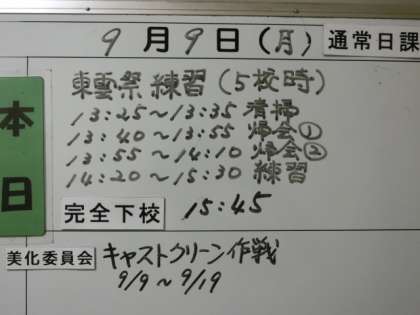 9月9日(月) 通常日課
本日
東雲祭練習(5校時)
13:25~13:35 清掃
13:40~13:55 帰会①
13:55~14:10 帰会②
14:20~15:30 練習
完全下校 15:45
美化委員会 キャストクリーン作戦
9/9~9/19